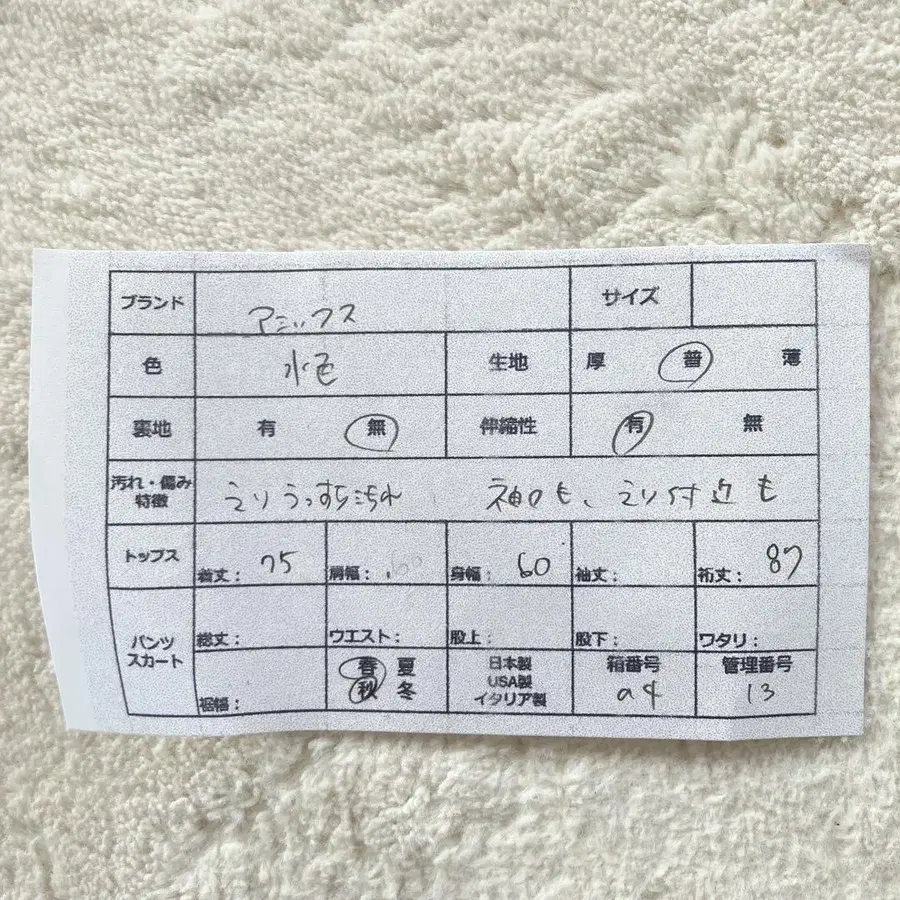 ブランド アミックス サイズ
色 水色 生地 厚 普 薄
裏地 有 無 伸縮性 有 無
汚れ・傷み
特徴 えりうっすら汚れ 、 袖口も、えり付近も
トップス 着丈: 75 肩幅: 身幅: 60 袖丈: 裄丈: 87
パンツ
スカート 総丈: ウエスト: 股上: 股下: ワタリ:
裾幅: 春 夏 秋 冬 日本製 USA製 イタリア製 箱番号 a4 管理番号 13